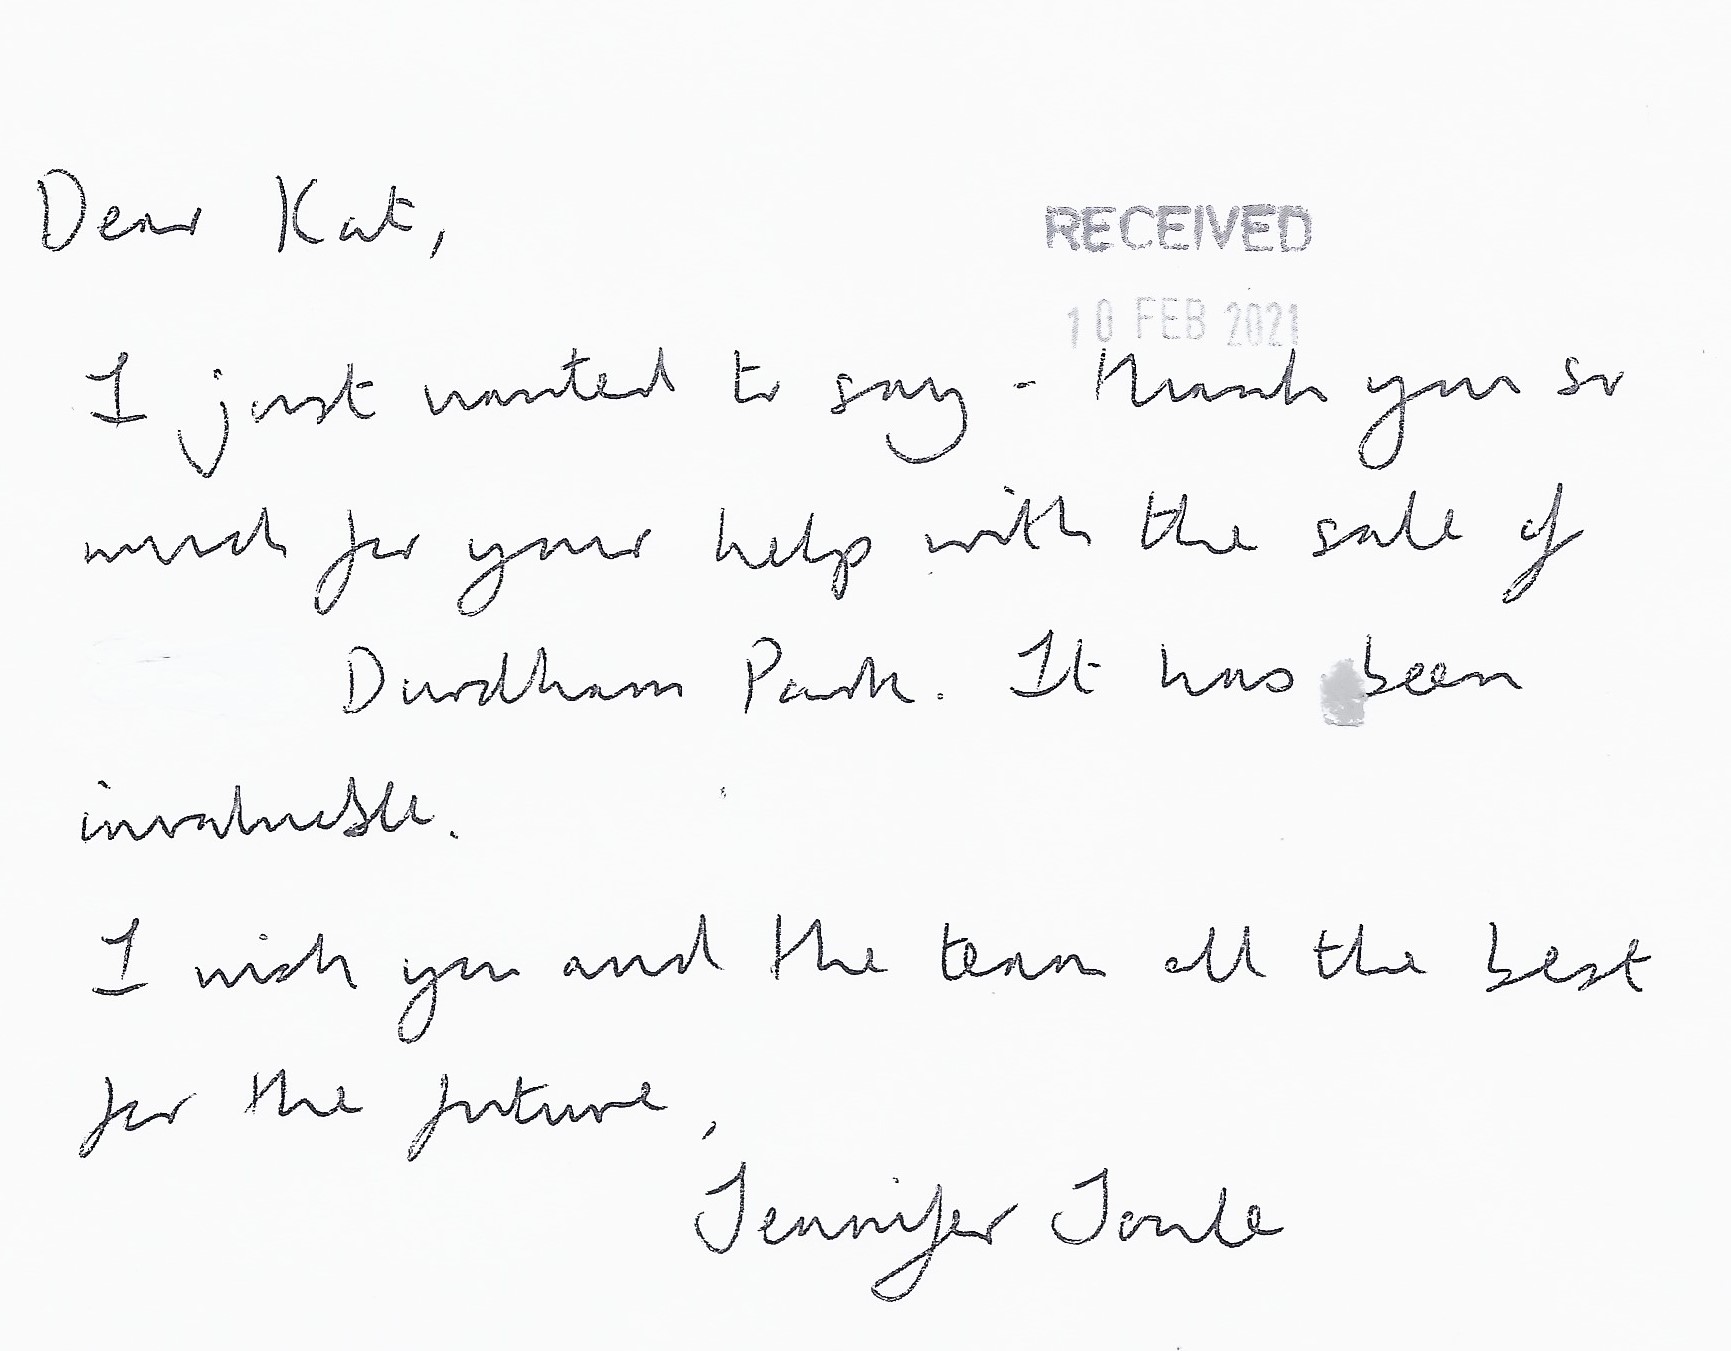 Dear Kat,
RECEIVED
10 FEB 2021
I just wanted to say - thank you so
much for your help with the sale of
Durdham Park. It has been
invaluable.
I wish you and the team all the best
for the future,
Jennifer Joule